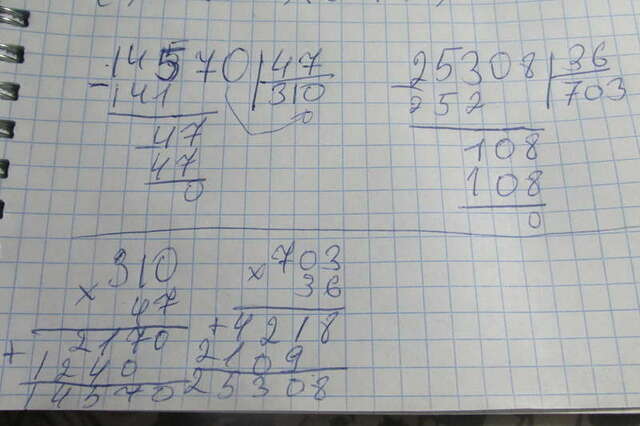 - 14570 | 47
141 | 310
- 47 0
47
0
- 25308 | 36
252 | 703
108
108
0
× 310
47
+ 2170
1240
14570
× 703
36
+ 4218
2109
25308